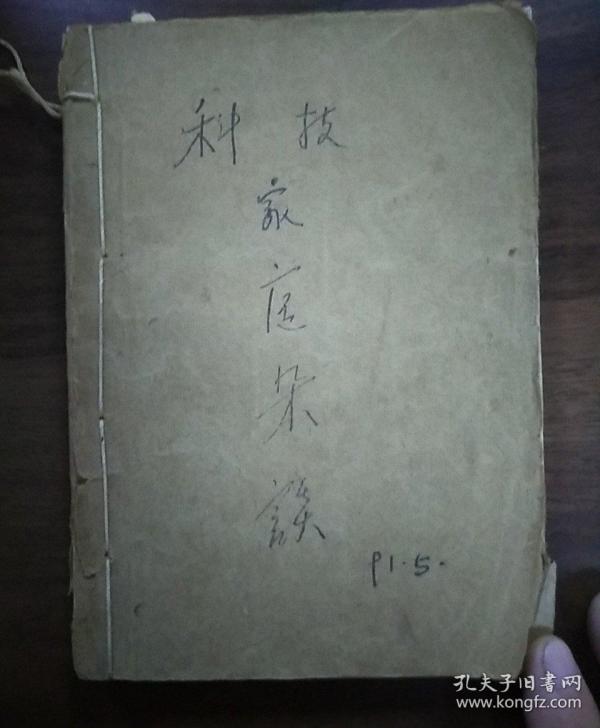 科技
家庭杂談
91.5.
孔夫子旧书网
www.kongfz.com